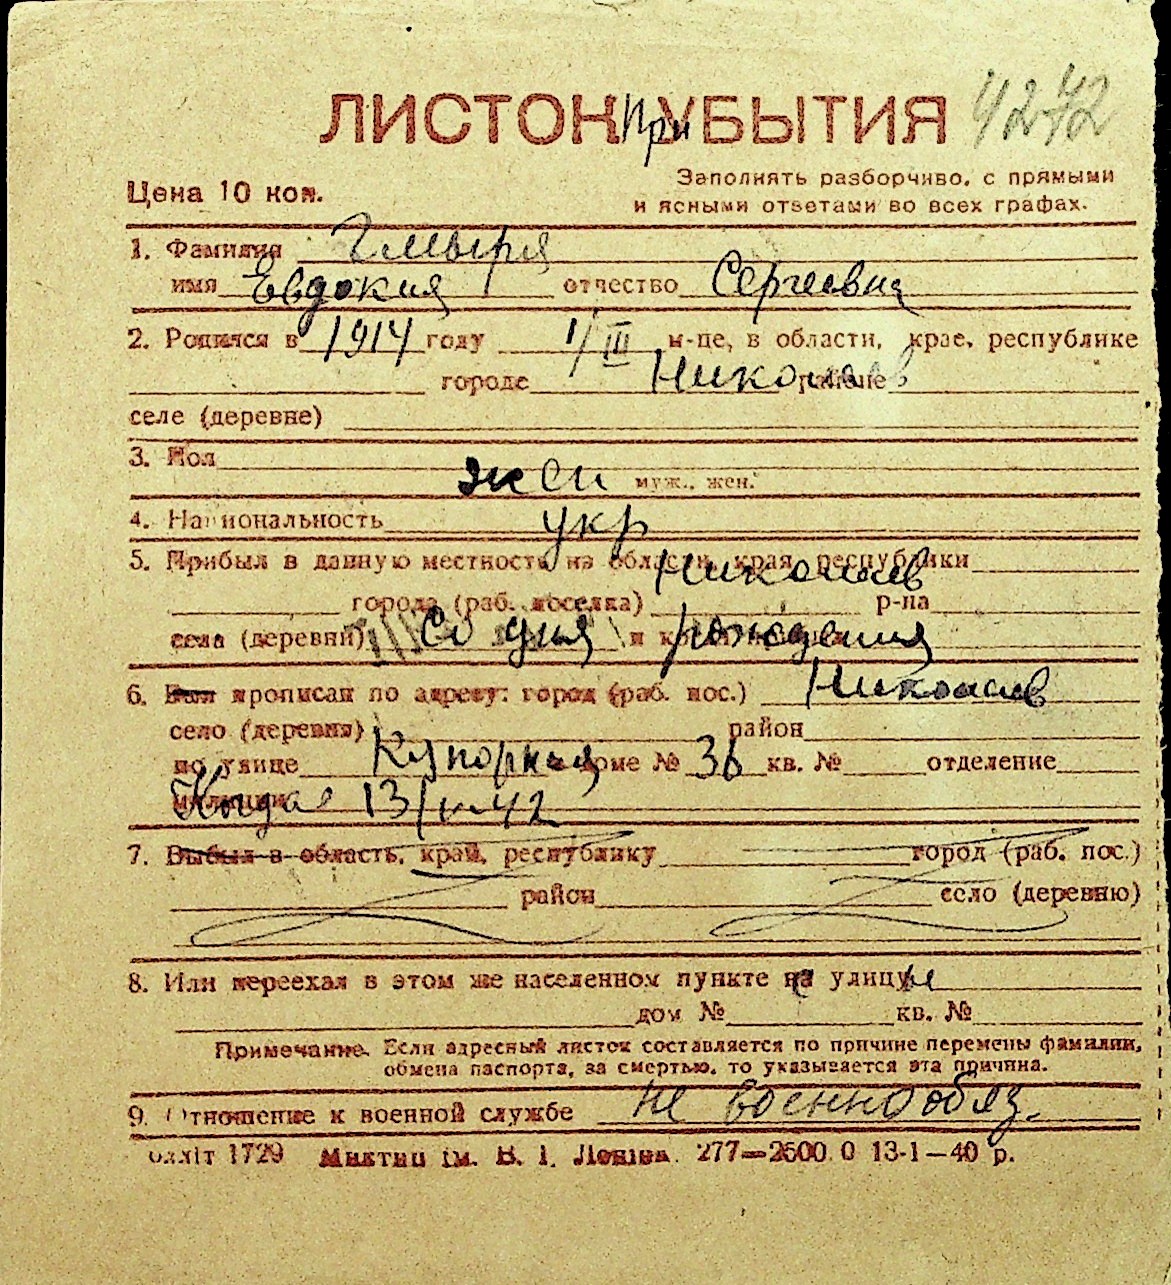 ЛИСТОК При УБЫТИЯ 4272
Цена 10 коп.
Заполнять разборчиво, с прямыми
и ясными ответами во всех графах.
1. Фамилия Гмыря
имя Евдокия отчество Сергеевна
2. Родился в 1914 году 1/III м-це, в области, крае, республике
городе Николаев районе
селе (деревне)
3. Пол жен муж., жен.
4. Национальность укр
5. Прибыл в данную местность из области, края, республики Николаев
города (раб. поселка) р-на
села (деревни) Со дня и когда рождения
6. Был прописан по адресу: город (раб. пос.) Николаев
село (деревня) район
по улице Купорная доме № 36 кв. № отделение
милиции Когда 13/V-42
7. Выбыл в область, край, республику город (раб. пос.)
район село (деревню)
8. Или переехал в этом же населенном пункте на улицу
дом № кв. №
Примечание. Если адресный листок составляется по причине перемены фамилии,
обмена паспорта, за смертью, то указывается эта причина.
9. Отношение к военной службе не военнообяз.
1729 ім. В. І. Леніна. 277—2500 0 13-1—40 р.